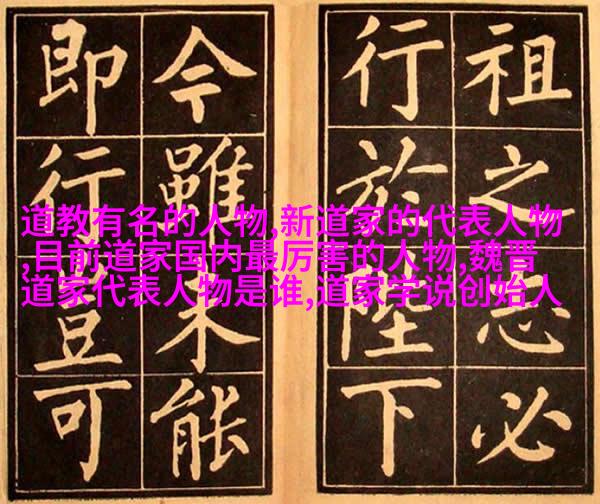 祖之志必
行於陛下
今雖未能
即行豈可
道教有名的人物,新道家的代表人物
,目前道家国内最厉害的人物,魏晋
道家代表人物是谁,道家学说创始人